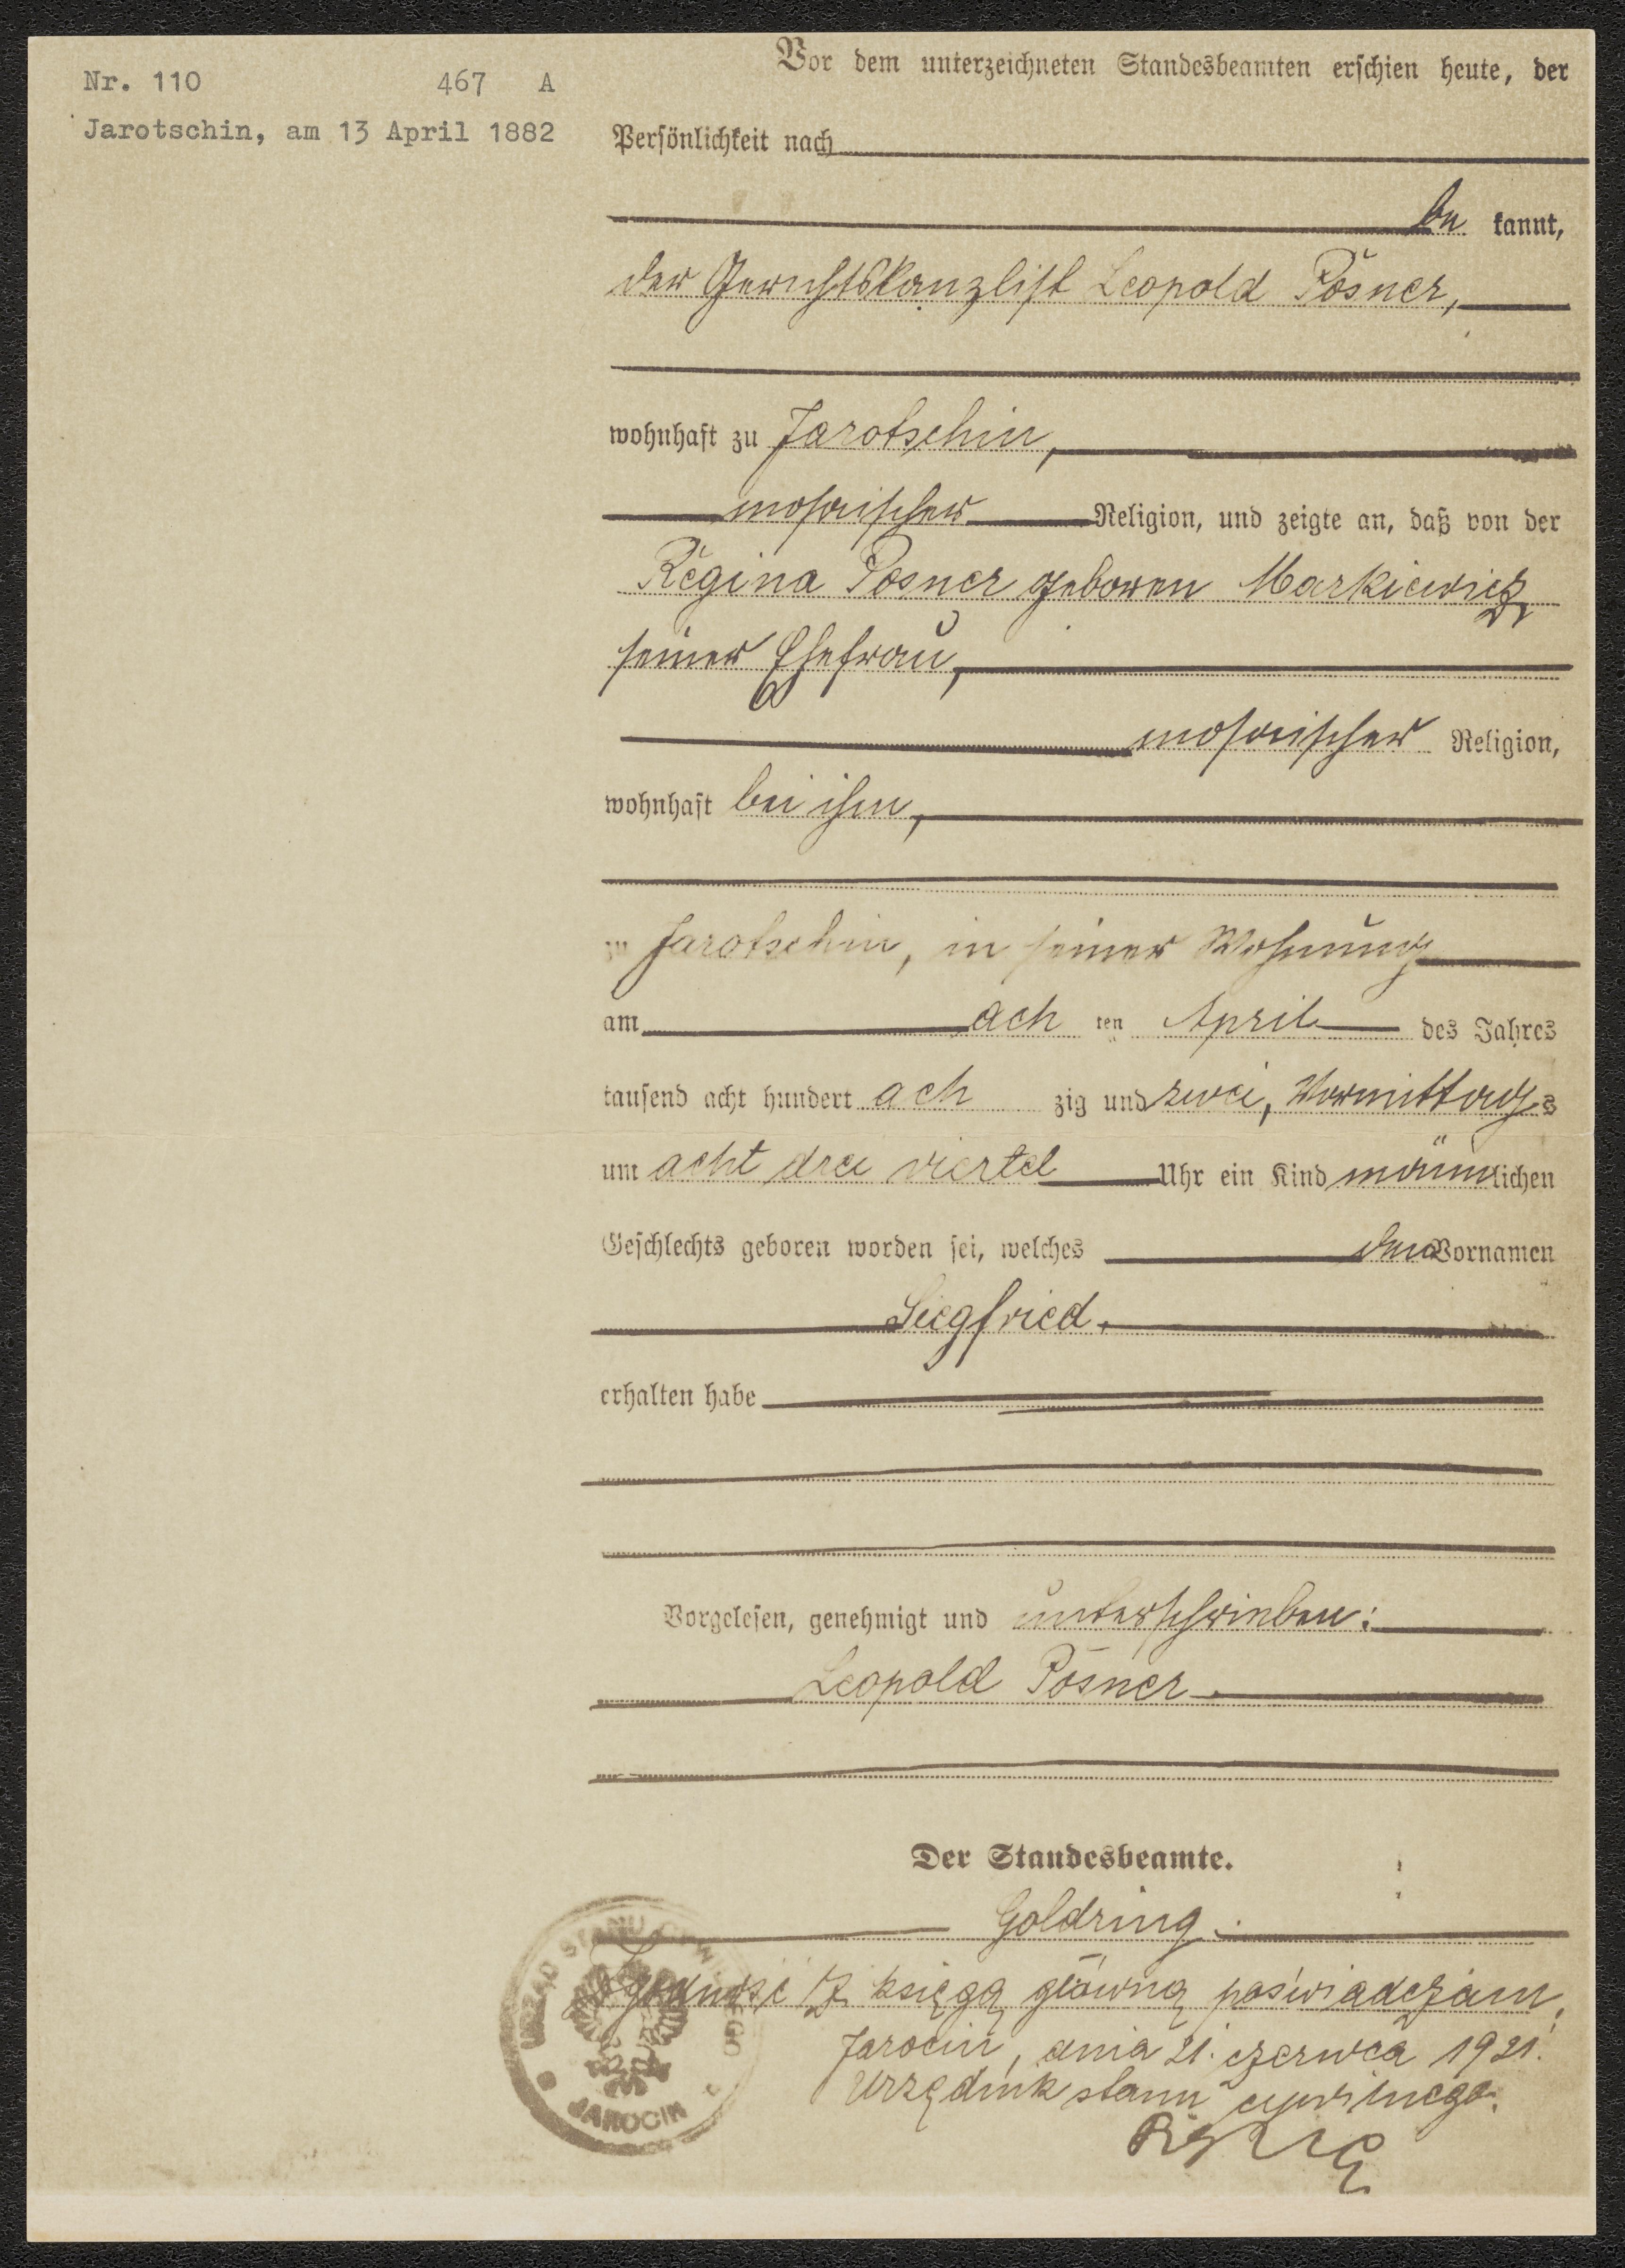 Nr. 110 467 A
Jarotschin, am 13 April 1882
Vor dem unterzeichneten Standesbeamten erschien heute, der
Persönlichkeit nach
be kannt,
der Gerichtskanzlist Leopold Posner,
wohnhaft zu Jarotschin,
mosaischer Religion, und zeigte an, daß von der
Regina Posner geboren Markiewicz,
seiner Ehefrau,
mosaischer Religion,
wohnhaft bei ihm,
zu Jarotschin, in seiner Wohnung
am ach ten April des Jahres
tausend acht hundert ach zig und zwei, Vormittags
um acht drei viertel Uhr ein Kind männlichen
Geschlechts geboren worden sei, welches den Vornamen
Siegfried.
erhalten habe
Vorgelesen, genehmigt und unterschrieben:
Leopold Posner.
Der Standesbeamte.
Goldring.
Zgodność z księgą główną poświadczam.
Jarocin, dnia 21. czerwca 1921.
Urzędnik stanu cywilnego.
URZĄD STANU CYWILNEGO
JAROCIN